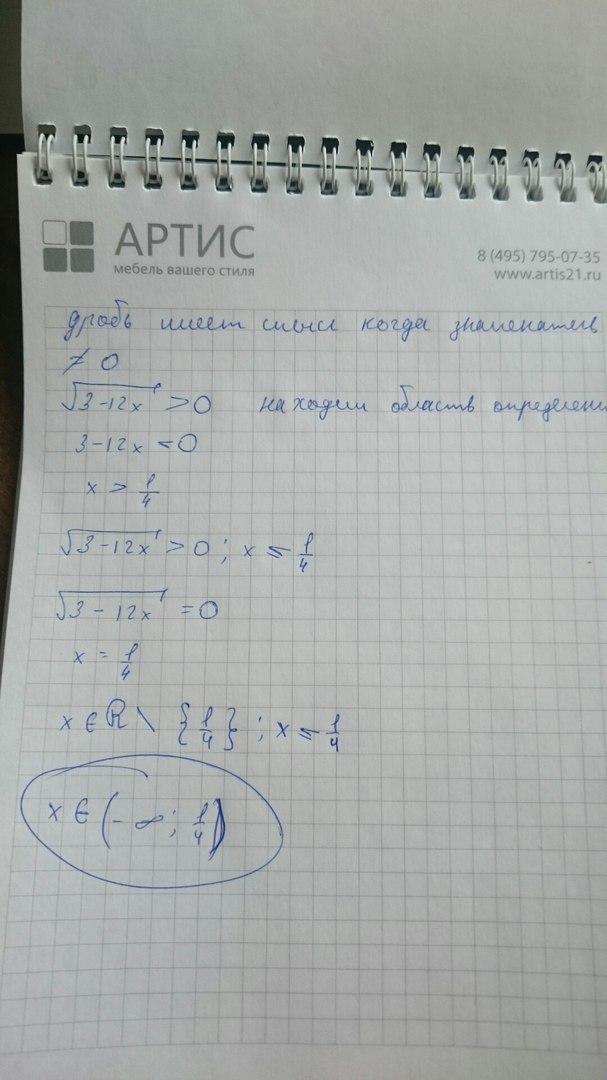 АРТИС
мебель вашего стиля
8 (495) 795-07-35
www.artis21.ru
дробь имеет смысл когда знаменатель
≠ 0
√3-12x > 0 находим область определени
3-12x < 0
x > 1/4
√3-12x > 0 ; x ≤ 1/4
√3-12x = 0
x = 1/4
x ∈ R \ {1/4} ; x ≤ 1/4
x ∈ (-∞; 1/4)